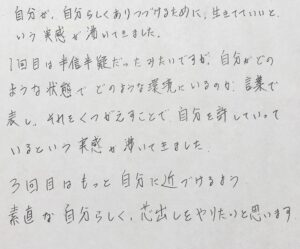 自分が、自分らしくありつづけるために、生きてていいと
いう実感が湧いてきました。
1回目は半信半疑だったみたいですが、自分がどの
ような状態で どのような環境にいるのか、言葉で
表し、それをくつがえすことで、自分を許していって
いるという実感が湧いてきました。
3回目はもっと自分に近づけるよう
素直な自分らしく、芯出しをやりたいと思います